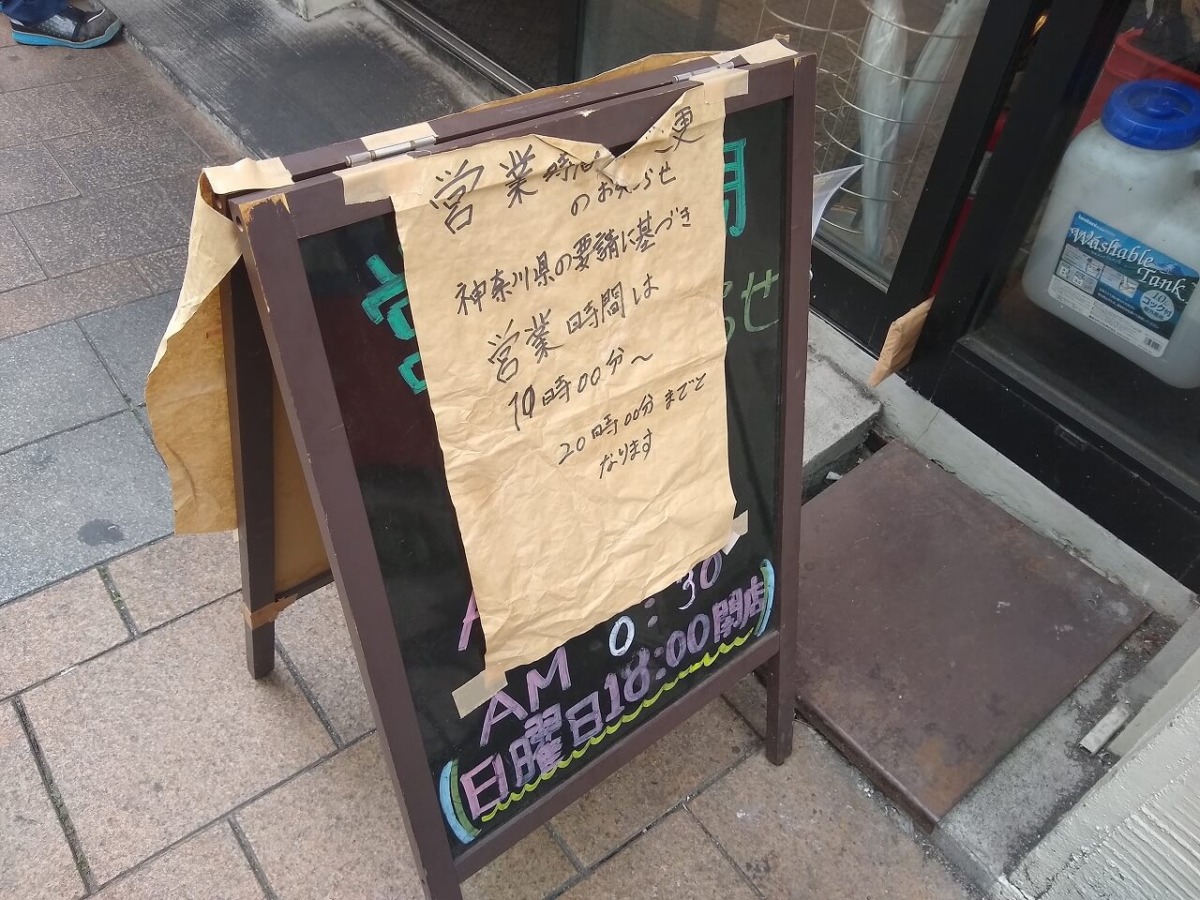 営業時間 更
のお知らせ
神奈川県の要請に基づき
営業時間は
10時00分〜
20時00分までと
なります
せ
0:30
AM
(日曜日18:00閉店)
Washable
Tank